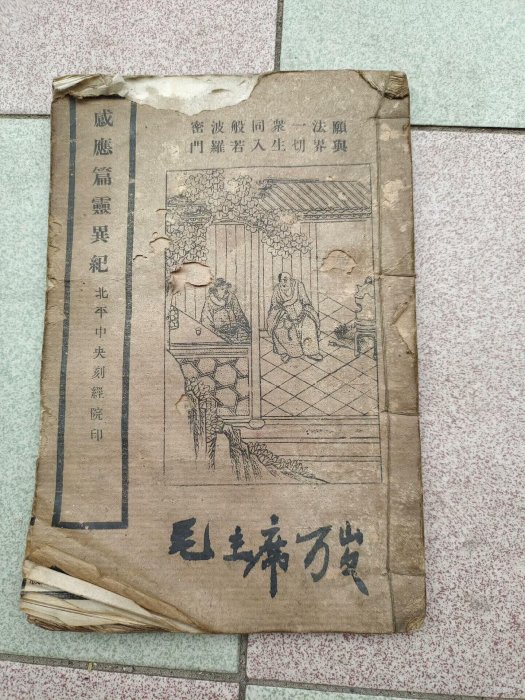 願與
法界
一切
衆生
同入
般若
波羅
密門
感應篇靈異紀 北平中央刻經院印
毛主席万岁